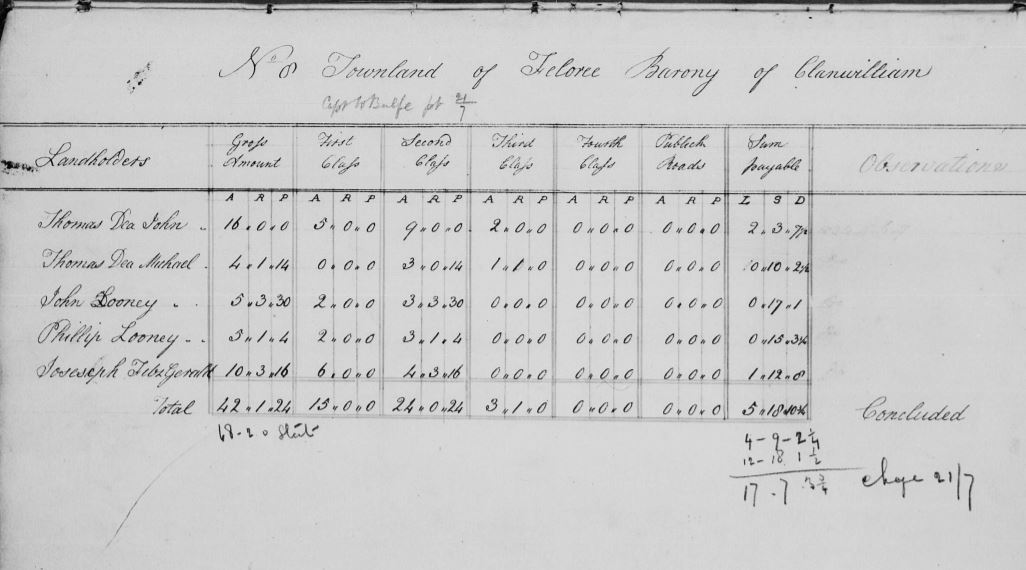 No 8 Townland of Feloree Barony of Clanwilliam
21/7
Landholders Gross Amount First Class Second Class Third Class Fourth Class Publick Roads Sum payable Observations
A R P A R P A R P A R P A R P A R P L S D
Thomas Dea John 16 " 0 " 0 5 " 0 " 0 9 " 0 " 0 2 " 0 " 0 0 " 0 " 0 0 " 0 " 0 2 " 3 " 7½
Thomas Dea Michael 4 " 1 " 14 0 " 0 " 0 3 " 0 " 14 1 " 1 " 0 0 " 0 " 0 0 " 0 " 0 0 " 10 " 2¼
John Looney 5 " 3 " 30 2 " 0 " 0 3 " 3 " 30 0 " 0 " 0 0 " 0 " 0 0 " 0 " 0 0 " 17 " 1
Phillip Looney 5 " 1 " 4 2 " 0 " 0 3 " 1 " 4 0 " 0 " 0 0 " 0 " 0 0 " 0 " 0 0 " 15 " 3¼
Joseseph FitzGerald 10 " 3 " 16 6 " 0 " 0 4 " 3 " 16 0 " 0 " 0 0 " 0 " 0 0 " 0 " 0 1 " 12 " 8
Total 42 " 1 " 24 15 " 0 " 0 24 " 0 " 24 3 " 1 " 0 0 " 0 " 0 0 " 0 " 0 5 " 18 " 10¼ Concluded
68-2 0 Stat
4 - 9 - 2¼
12 - 18 1½
17 - 7 3¾ 21/7